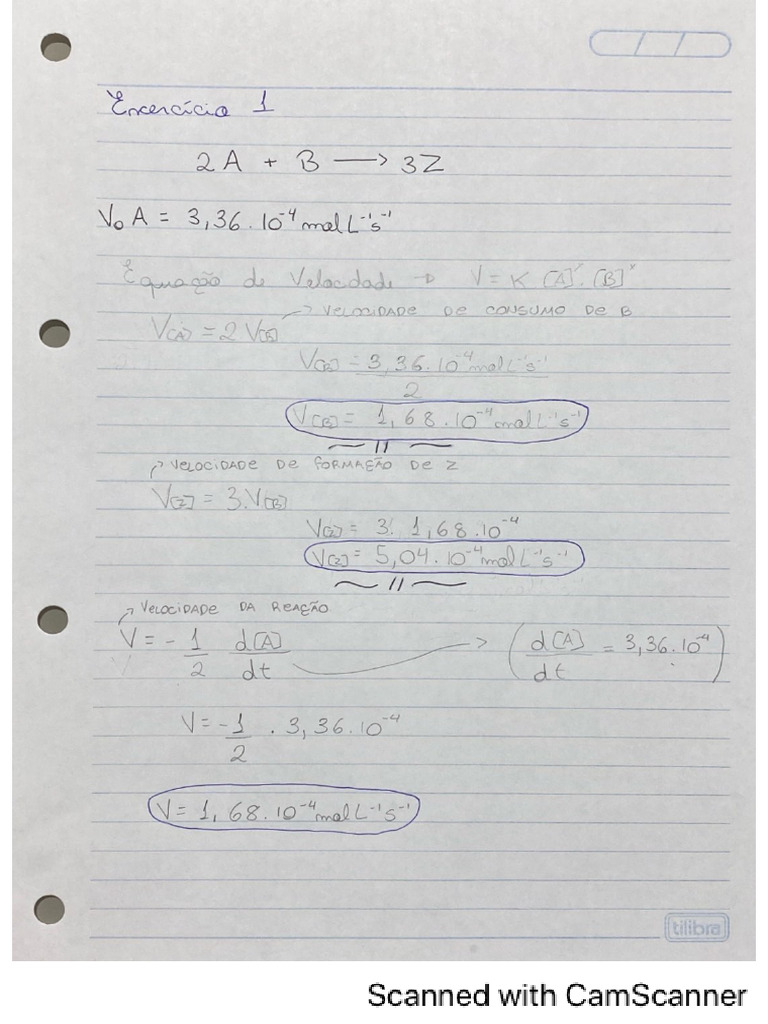 / /
Exercício 1
2A + B → 3Z
V₀A = 3,36 . 10⁻⁴ mol L⁻¹s⁻¹
Equação de Velocidade → V = K . [A]ˣ . [B]ʸ
V[A] = 2 V[B] → VELOCIDADE DE CONSUMO DE B
V[B] = 3,36 . 10⁻⁴ mol L⁻¹s⁻¹
2
V[B] = 1,68 . 10⁻⁴ mol L⁻¹s⁻¹
→ VELOCIDADE DE FORMAÇÃO DE Z
V[Z] = 3.V[B]
V[Z] = 3. 1,68 . 10⁻⁴
V[Z] = 5,04 . 10⁻⁴ mol L⁻¹s⁻¹
→ VELOCIDADE DA REAÇÃO
V = - 1/2 d[A]/dt → (d[A]/dt = 3,36 . 10⁻⁴)
V = - 1/2 . 3,36 . 10⁻⁴
V = 1,68 . 10⁻⁴ mol L⁻¹s⁻¹
tilibra
Scanned with CamScanner